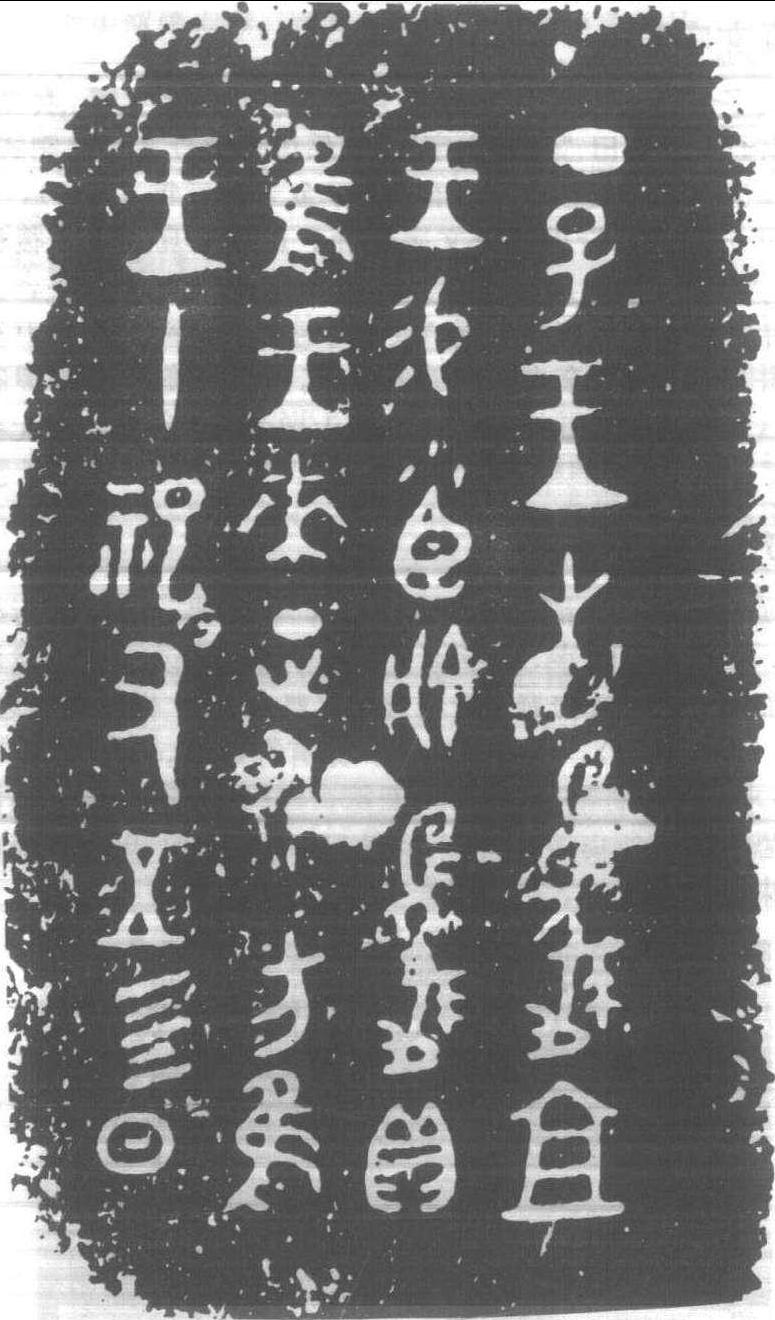 丁巳王省夔且
王易小臣俞夔貝
隹王來正人方隹
王十祀又五肜日